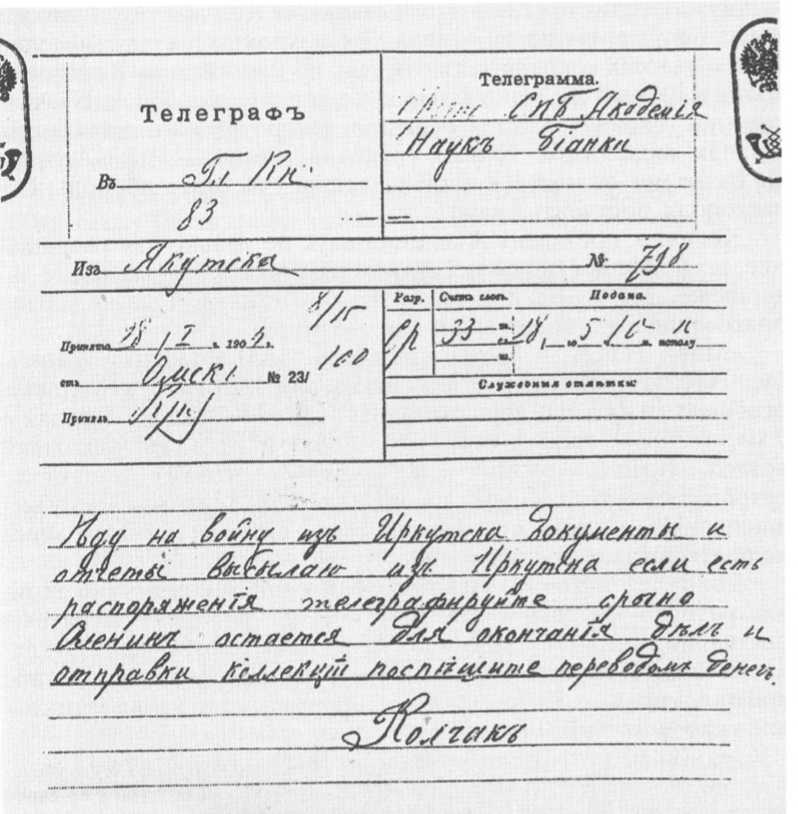 Телеграфъ
Въ Гл Кн
83
Телеграмма.
СПБ Академія
Наукъ Біанки
Изъ Якутска
№ 798
8/15
160
Принята 28 / I г. 1904 г.
ст. Омскъ № 23/
Принялъ
Разр. Счетъ словъ. Подана.
Ср 33 28 5
Служебныя отмѣтки:
Иду на войну изъ Иркутска документы и
отчеты высылаю изъ Иркутска если есть
распоряженія телеграфируйте срочно
Оленинъ остается для окончанія дѣлъ и
отправки коллекцій поспѣшите переводомъ денегъ.
Колчакъ